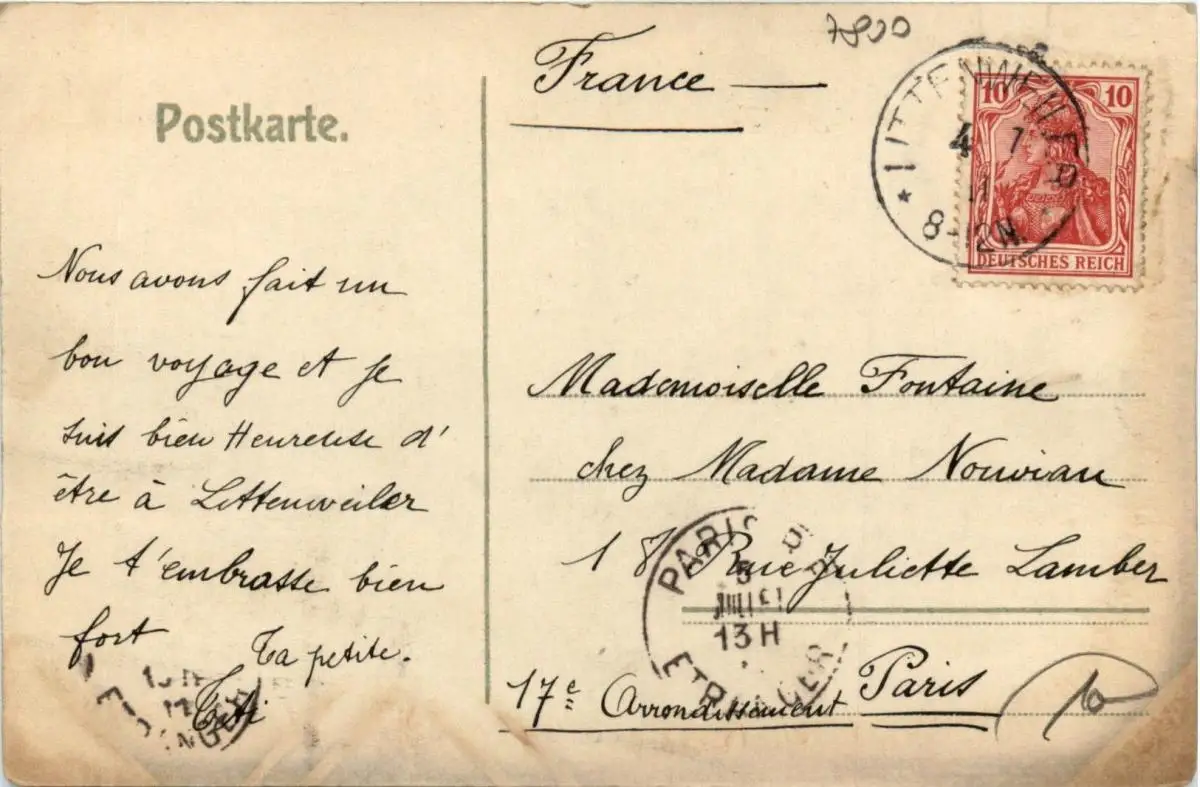 7800
France —
Postkarte.
LITTENWEILER
4 7
11
8-12N.
10 10
DEUTSCHES REICH
Nous avons fait un
bon voyage et je
suis bien Heureuse d'
être à Littenweiler
Je t'embrasse bien
fort
Ta petite.
Titi
Mademoiselle Fontaine
chez Madame Nouviau
18 Rue Juliette Lamber
17e Arrondissement Paris
PARIS
5
JUILET
13H
ETRANGER